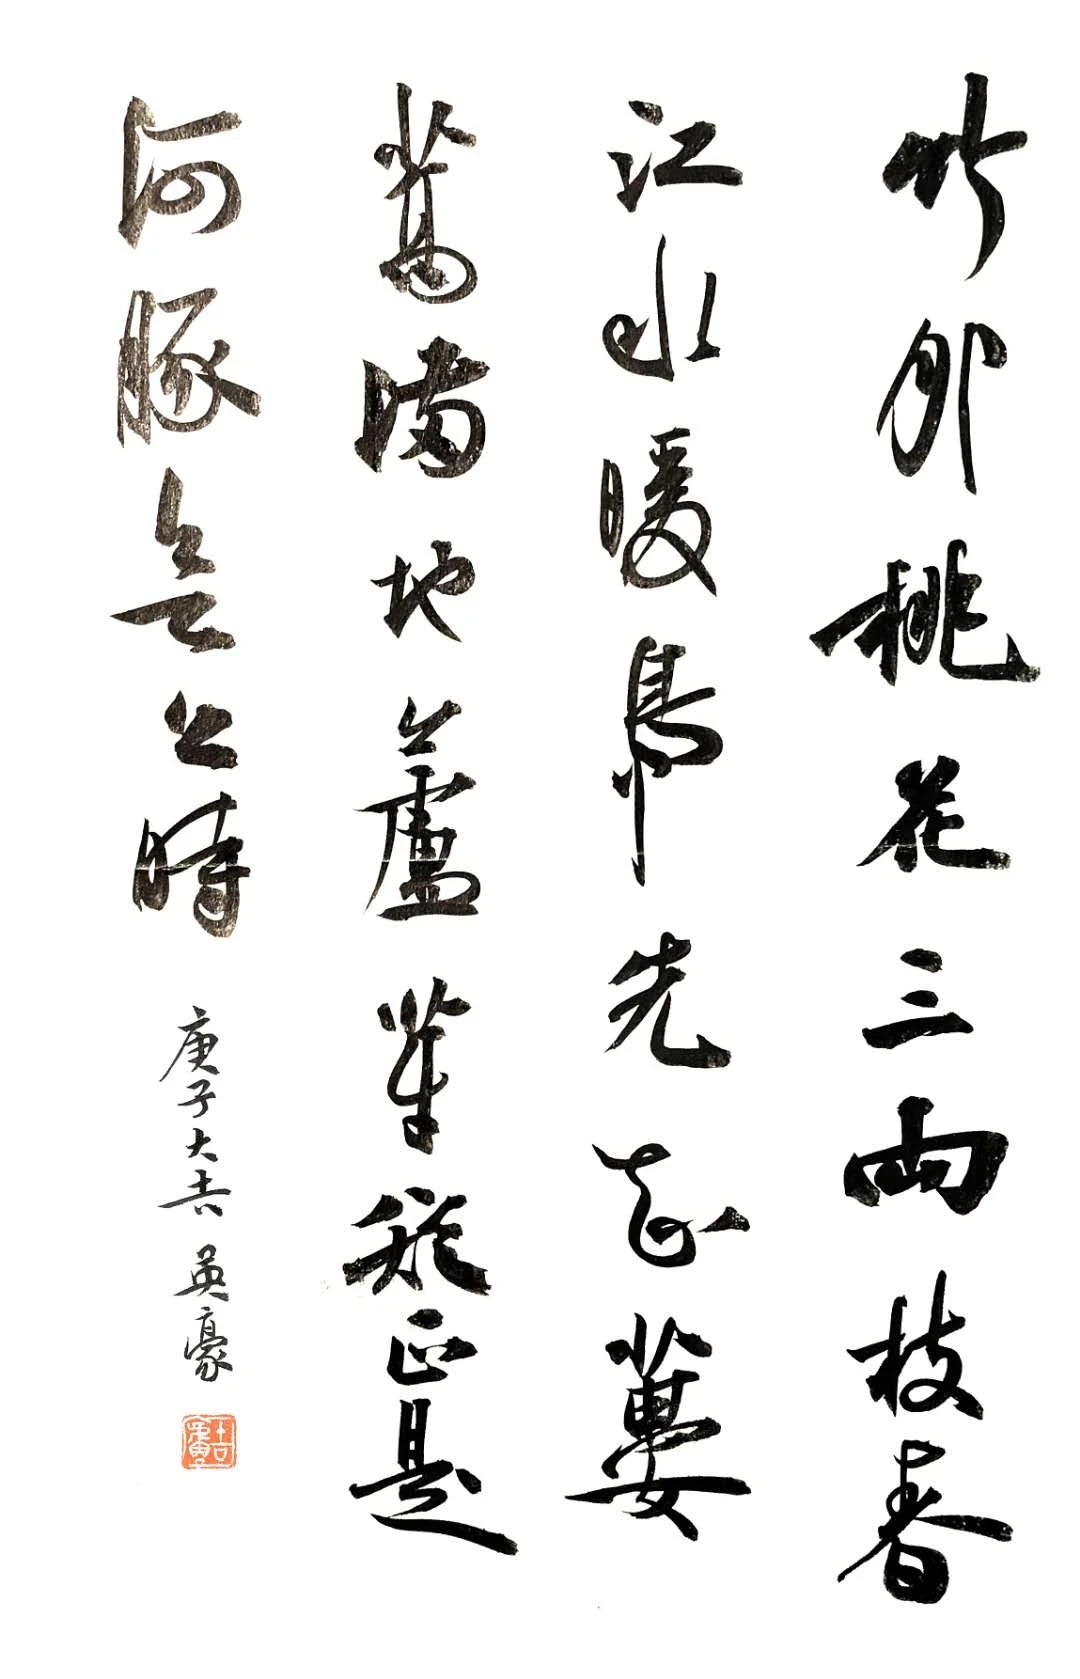 竹外桃花三兩枝春
江水暖鴨先知蔞
蒿滿地蘆芽短正是
河豚欲上時
庚子大吉 英豪